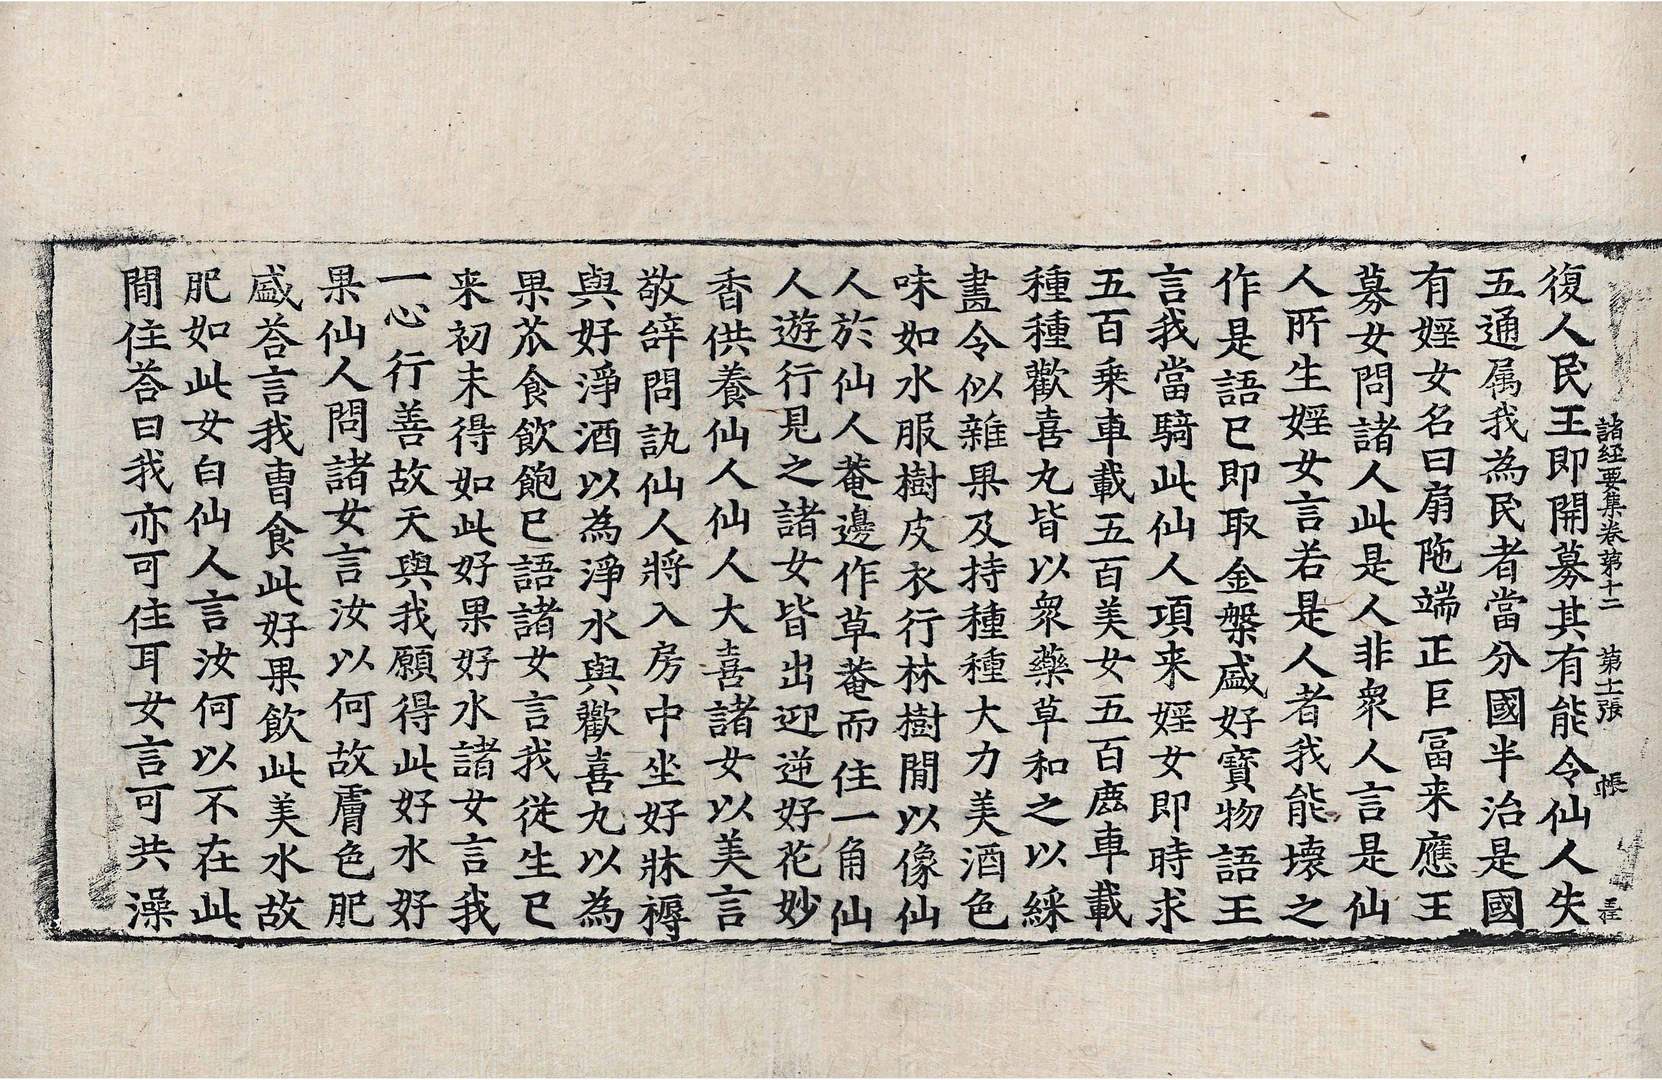 諸經要集卷第十二 第十一張 帳
復人民王即開募其有能令仙人失
五通属我為民者當分國半治是國
有婬女名曰扇陁端正巨冨来應王
募女問諸人此是人非衆人言是仙
人所生婬女言若是人者我能壞之
作是語已即取金槃盛好寶物語王
言我當騎此仙人項来婬女即時求
五百乗車載五百美女五百鹿車載
種種歡喜丸皆以衆藥草和之以綵
畫令似雜果及持種種大力美酒色
味如水服樹皮衣行林樹間以像仙
人於仙人菴邊作草菴而住一角仙
人遊行見之諸女皆出迎逆好花妙
香供養仙人仙人大喜諸女以美言
敬辝問訊仙人將入房中坐好牀褥
與好淨酒以為淨水與歡喜丸以為
果苽食飲飽已語諸女言我從生已
来初未得如此好果好水諸女言我
一心行善故天與我願得此好水好
果仙人問諸女言汝以何故膚色肥
盛荅言我曹食此好果飲此美水故
肥如此女白仙人言汝何以不在此
間住荅曰我亦可住耳女言可共澡